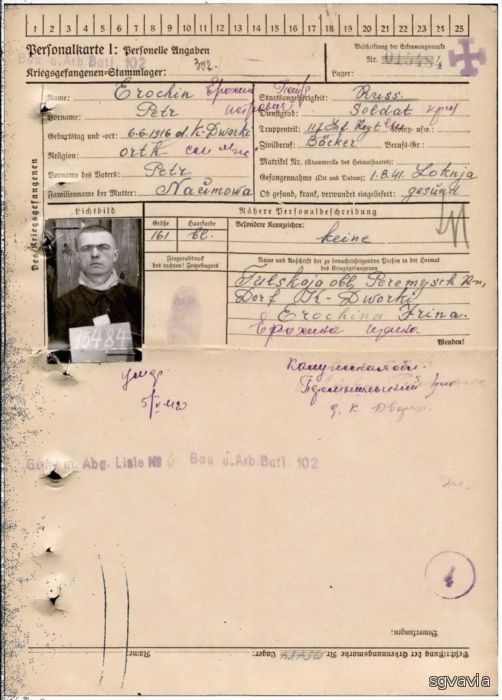 1 2 3 4 5 6 7 8 9 10 11 12 13 14 15 16 17 18 19 20 21 22 23 24 25
Personalkarte I: Personelle Angaben
Bau u. Arb Batl. 102
Kriegsgefangenen-Stammlager: 302.
Beschriftung der Erkennungsmarke
Nr. 015484
Lager:
Des Kriegsgefangenen
Name: Erochin Ерохин
Vorname: Petr
Geburtstag und -ort: 6.6.1916 d. K-Dworki
Religion: orth
Vorname des Vaters: Petr
Familienname der Mutter: Naumowa
Staatsangehörigkeit: Russ. Петр
Dienstgrad: Soldat
Truppenteil: Komp. usw.:
Zivilberuf: Böcker Berufs-Gr.:
Matrikel Nr. (Stammrolle des Heimatstaates):
Gefangennahme (Ort und Datum): 1.8.41. Loknja
Ob gesund, krank, verwundet eingeliefert: gesund
Lichtbild
Nähere Personalbeschreibung
Größe Haarfarbe Besondere Kennzeichen:
161 bl. keine
Fingerabdruck
des rechten! Zeigefingers
Name und Anschrift der zu benachrichtigenden Person in der Heimat
des Kriegsgefangenen
Tulskaja obl. Peremysch
Dorf K-Dworki
Erochina Irina.
Ерохина
Wenden!
15484
умер
5/V-42
Калужская обл.
д. К Дворки
Abg. Liste № 6 Bau u. Arb. Batl. 102
Bemerkungen:
Beschriftung der Erkennungsmarke Nr. Lager: Name:
sgvavia